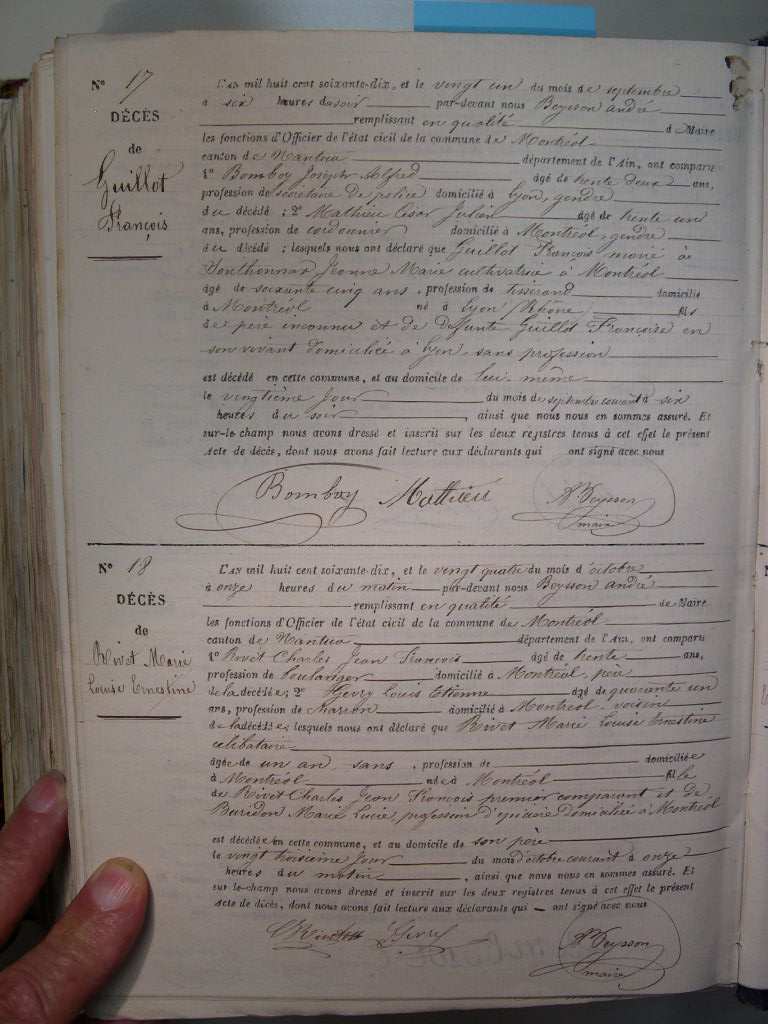 N° 17
DÉCÈS
de
Guillot
François
L'AN mil huit cent soixante-dix, et le vingt un du mois de septembre
à six heures du soir par-devant nous Beysson andré
remplissant en qualité de Maire
les fonctions d'Officier de l'état civil de la commune de Montréol
canton de Nantua département de l'Ain, ont comparu
1° Bomboy Joseph Alfred âgé de trente deux ans,
profession de secrétaire de police domicilié à Lyon, gendre
du décédé ; 2° Mathieu César Julien âgé de trente un
ans, profession de cordonnier domicilié à Montréol, gendre
du décédé ; lesquels nous ont déclaré que Guillot François marié à
Jeanne Marie cultivatrice à Montréol
âgé de soixante cinq ans, profession de tisserand domicilié
à Montréol né à Lyon (Rhône) fils
de père inconnu et de defunte Guillot Françoise en
son vivant domiciliée à Lyon sans profession
est décédé en cette commune, et au domicile de lui-même
le vingtième jour du mois de septembre courant à six
heures du soir, ainsi que nous nous en sommes assuré. Et
sur-le champ nous avons dressé et inscrit sur les deux registres tenus à cet effet le présent
acte de décès, dont nous avons fait lecture aux déclarants qui ont signé avec nous
Bomboy Mathieu Beysson
maire
N° 18
DÉCÈS
de
Rivet Marie
Louise Ernestine
L'AN mil huit cent soixante-dix, et le vingt quatre du mois d'octobre
à onze heures du matin par-devant nous Beysson andré
remplissant en qualité de Maire
les fonctions d'Officier de l'état civil de la commune de Montréol
canton de Nantua département de l'Ain, ont comparu
1° Rivet Charles Jean François âgé de trente ans,
profession de boulanger domicilié à Montréol, père
de la décédée ; 2° Louis Etienne âgé de quarante un
ans, profession de domicilié à Montréol voisin
de la décédée, lesquels nous ont déclaré que Rivet Marie Louise Ernestine
célibataire
âgée de un an sans, profession de domiciliée
à Montréol née à Montréol fille
de Rivet Charles Jean François premier comparant et de
Marie Lucie, profession domiciliée à Montréol
est décédée en cette commune, et au domicile de son père
le vingt troisième jour du mois d'octobre courant à onze
heures du matin, ainsi que nous nous en sommes assuré. Et
sur-le-champ nous avons dressé et inscrit sur les deux registres tenus à cet effet le présent
acte de décès, dont nous avons fait lecture aux déclarants qui ont signé avec nous
Beysson
maire